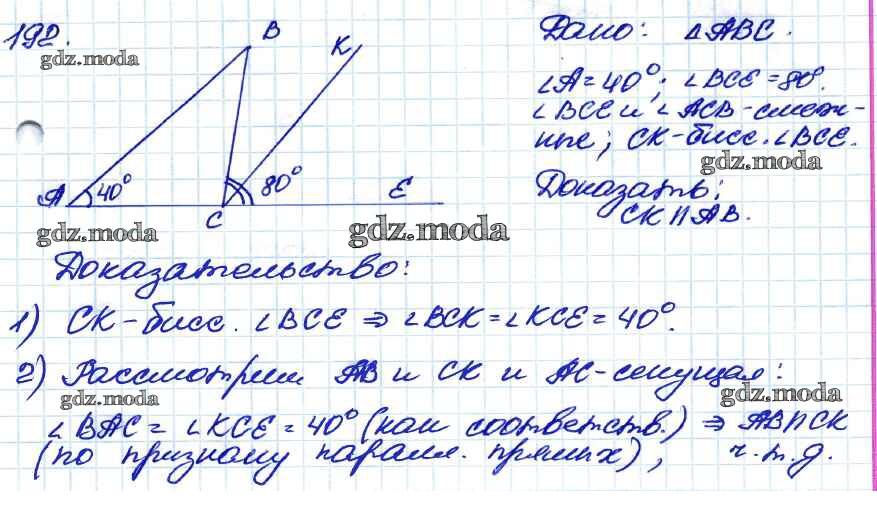 192.
gdz.moda
B
K
A
40°
80°
C
E
gdz.moda
gdz.moda
Дано: △ABC.
∠A = 40°; ∠BCE = 80°.
∠BCE и ∠ACB - смеж-
ные; CK - бисс. ∠BCE.
gdz.moda
Доказать:
CK || AB.
Доказательство:
1) CK - бисс. ∠BCE ⇒ ∠BCK = ∠KCE = 40°.
2) Рассмотрим AB и CK и AC - секущая:
gdz.moda
gdz.moda
∠BAC = ∠KCE = 40° (как соответств.) ⇒ AB || CK
(по признаку паралл. прямых), ч.т.д.